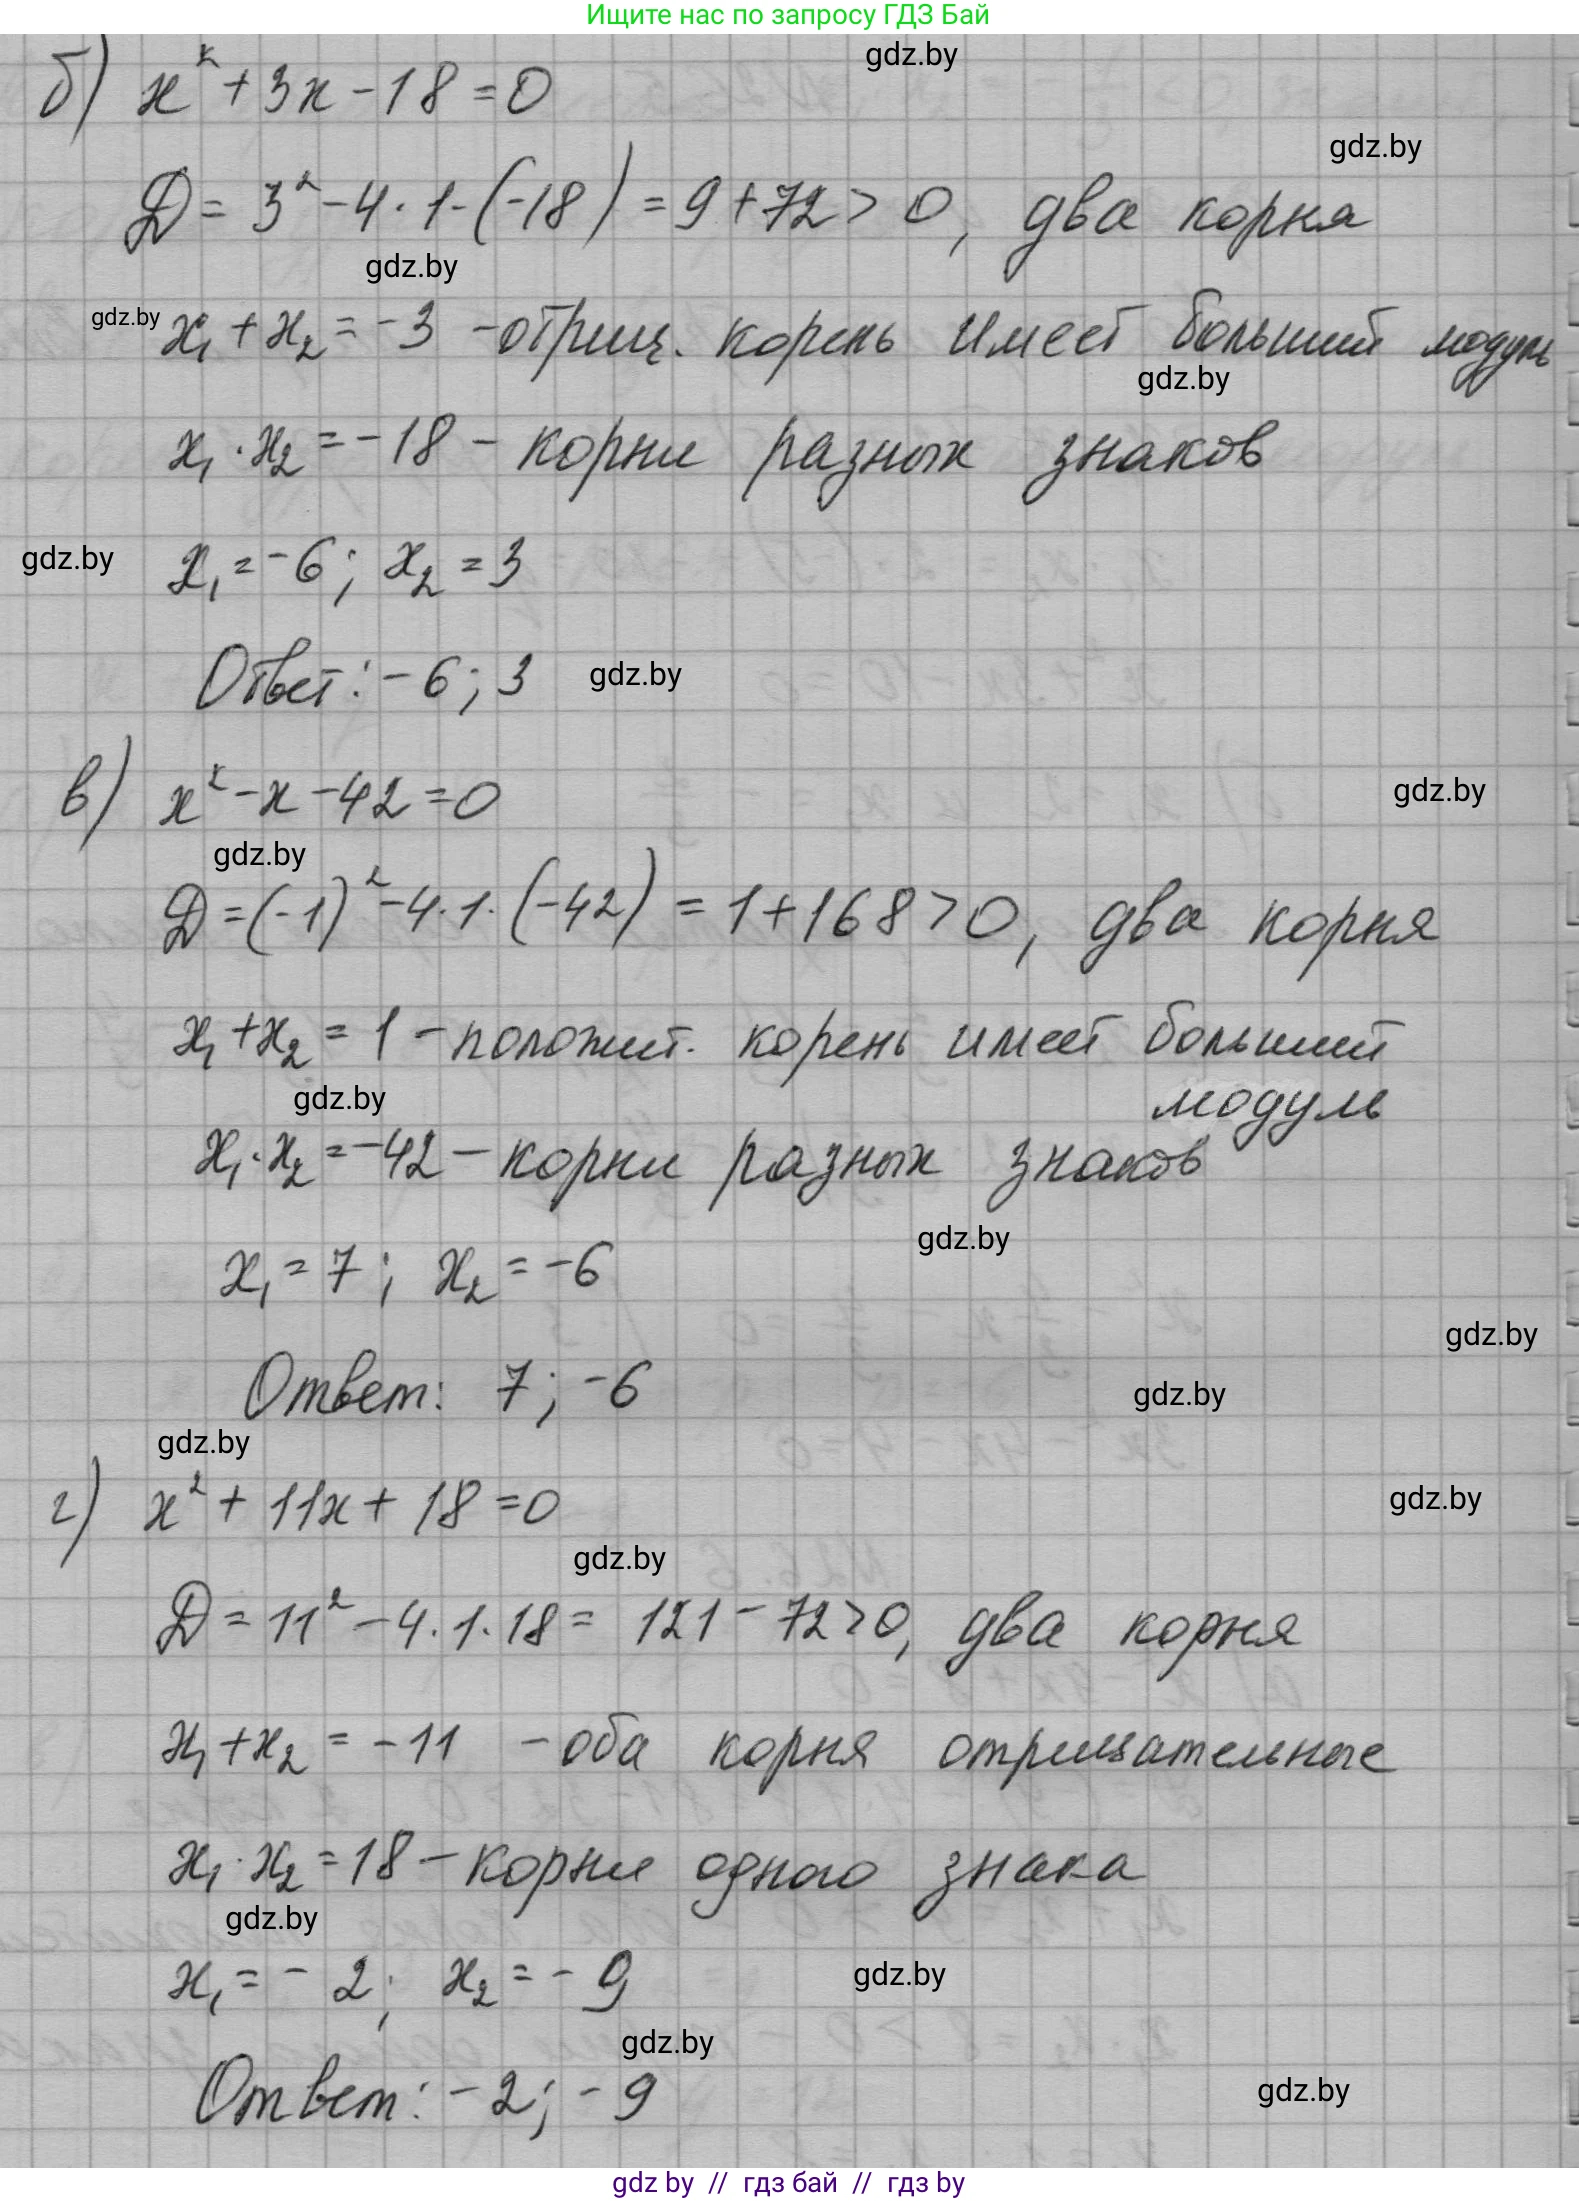 Ищите нас по запросу ГДЗ Бай
gdz.by
б) x² + 3x - 18 = 0
gdz.by
D = 3² - 4 · 1 · (-18) = 9 + 72 > 0, два корня
gdz.by
gdz.by
x₁ + x₂ = -3 - отриц. корень имеет больший модуль
gdz.by
x₁ · x₂ = -18 - корни разных знаков
gdz.by
x₁ = -6; x₂ = 3
Ответ: -6; 3
gdz.by
в) x² - x - 42 = 0
gdz.by
gdz.by
D = (-1)² - 4 · 1 · (-42) = 1 + 168 > 0, два корня
x₁ + x₂ = 1 - положит. корень имеет больший
модуль
gdz.by
x₁ · x₂ = -42 - корни разных знаков
gdz.by
x₁ = 7; x₂ = -6
gdz.by
Ответ: 7; -6
gdz.by
gdz.by
г) x² + 11x + 18 = 0
gdz.by
gdz.by
D = 11² - 4 · 1 · 18 = 121 - 72 > 0, два корня
x₁ + x₂ = -11 - оба корня отрицательные
x₁ · x₂ = 18 - корни одного знака
gdz.by
x₁ = -2; x₂ = -9
gdz.by
gdz.by
Ответ: -2; -9
gdz.by
gdz by // гдз бай // гдз by